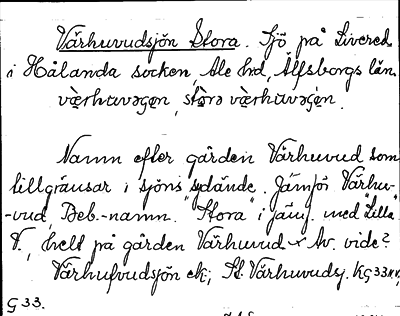 Värhuvudsjön Stora. Sjö på Livered
i Hålanda socken, Ale hrd, Älfsborgs län.
Namn efter gården Värhuvud som
tillgränsar i sjöns sydände. Jämför Värhu-
-vud, Beb.-namn. "Stora" i jämf. med "Lilla"
V., helt på gården Värhuvud x Av. vide?
Värhufvudsjön ek; St. Värhuvudsj. KG33NV,
G 33.